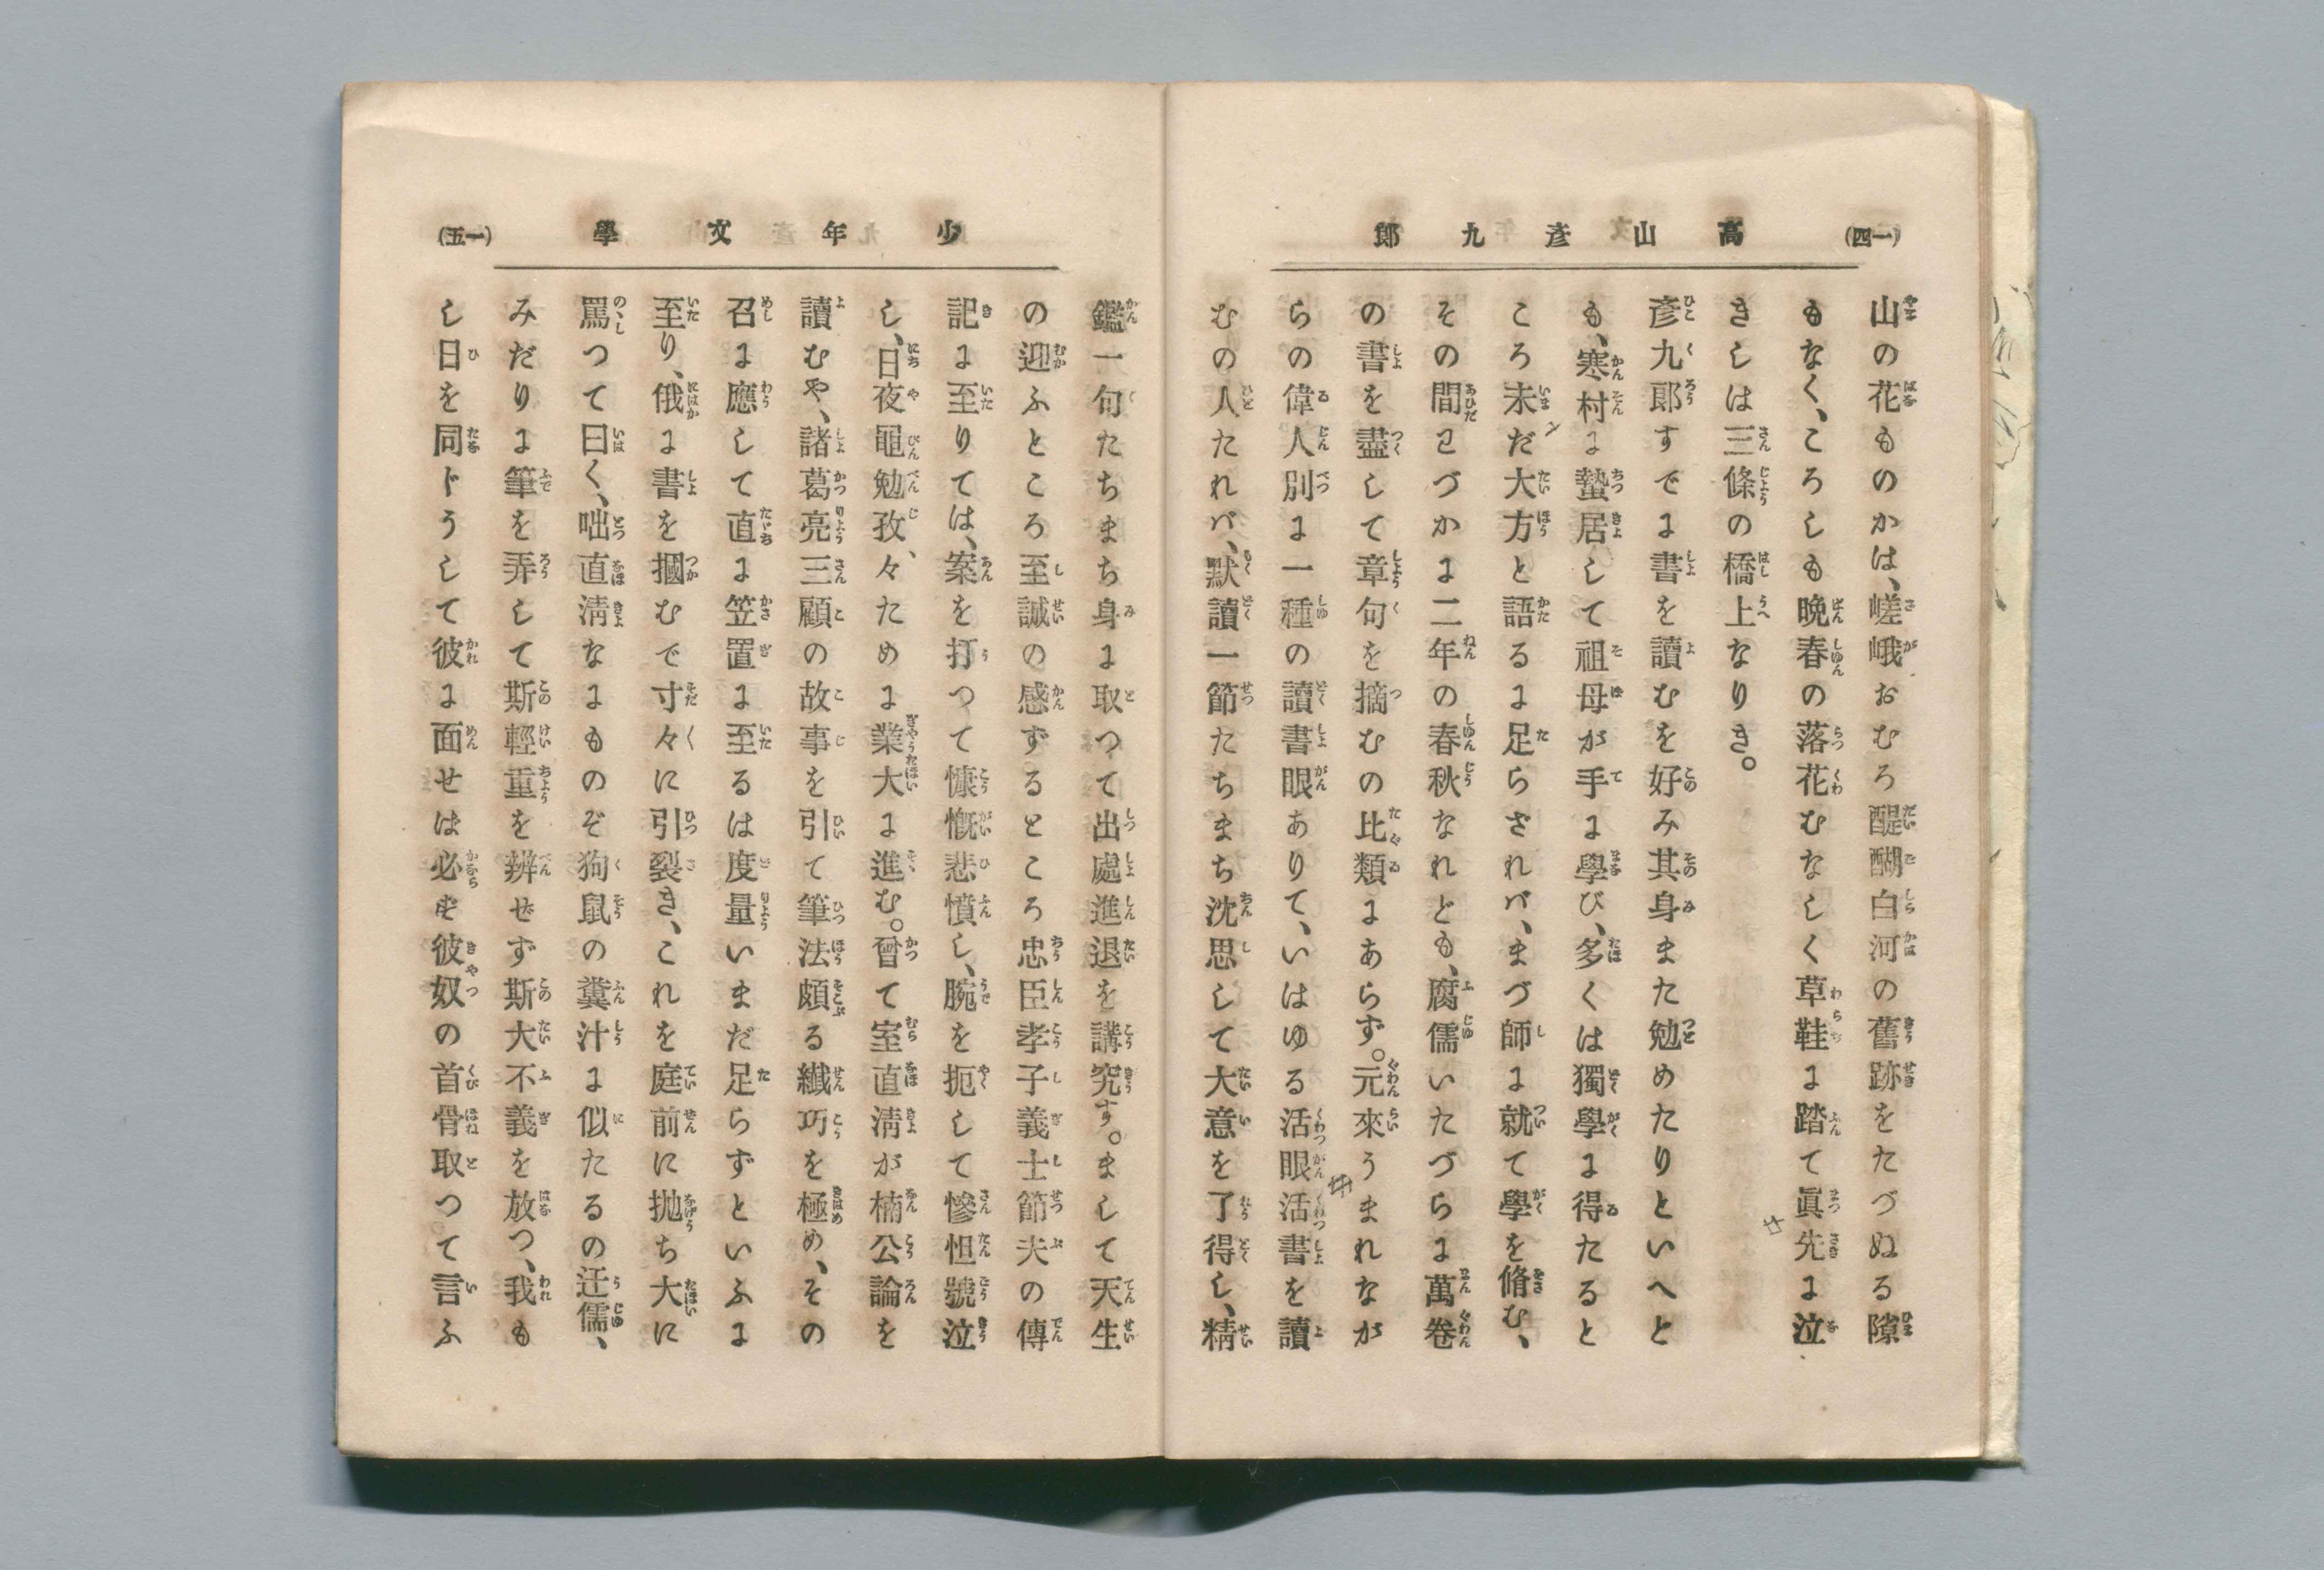 (一四)
高山彦九郎
山の花ものかは、嵯峨おむろ醍醐白河の舊跡をたづぬる隙
もなく、ころしも晩春の落花むなしく草鞋に踏て眞先に泣
きしは三條の橋上なりき。
彦九郎すでに書を讀むを好み其身また勉めたりといへと
も、寒村に蟄居して祖母が手に學び、多くは獨學に得たると
ころ未だ大方と語るに足らざれバ、まづ師に就て學を脩む、
その間わづかに二年の春秋なれとも、腐儒いたづらに萬卷
の書を盡して章句を摘むの比類にあらず。元來うまれなが
らの偉人別に一種の讀書眼ありて、いはゆる活眼活書を讀
むの人たれバ、默讀一節たちまち沈思して大意を了得し、精
少年文學
(一五)
鑑一句たちまち身に取つて出處進退を講究す。まして天生
の迎ふところ至誠の感ずるところ忠臣孝子義士節夫の傳
記に至りては、案を打つて慷慨悲憤し、腕を扼して慘怛號泣
し、日夜黽勉孜々、ために業大に進む。曾て室直淸が楠公論を
讀むや、諸葛亮三顧の故事を引て筆法頗る纖巧を極め、その
召に應して直に笠置に至るは度量いまだ足らずといふに
至り、俄に書を摑むで寸々に引裂き、これを庭前に抛ち大に
罵つて曰く、咄直淸なにものぞ狗鼠の糞汁に似たるの迂儒、
みだりに筆を弄して斯輕重を辨ぜず斯大不義を放つ、我も
し日を同ドうして彼に面せは必ず彼奴の首骨取つて言ふ